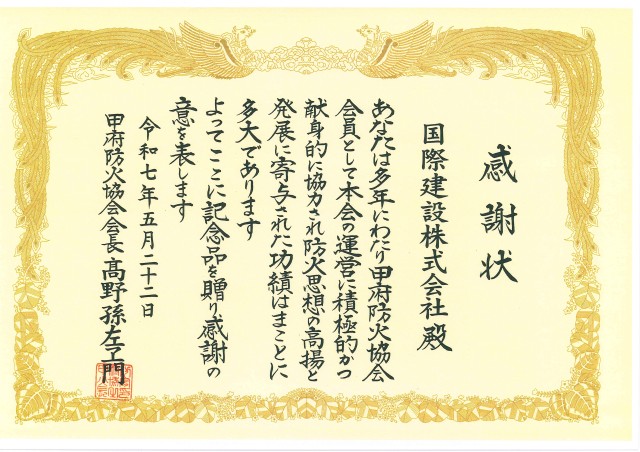 感謝状
国際建設株式会社殿
あなたは多年にわたり甲府防火協会
会員として本会の運営に積極的かつ
献身的に協力され防火思想の高揚と
発展に寄与された功績はまことに
多大であります
よってここに記念品を贈り感謝の
意を表します
令和七年五月二十二日
甲府防火協会会長髙野孫左ヱ門